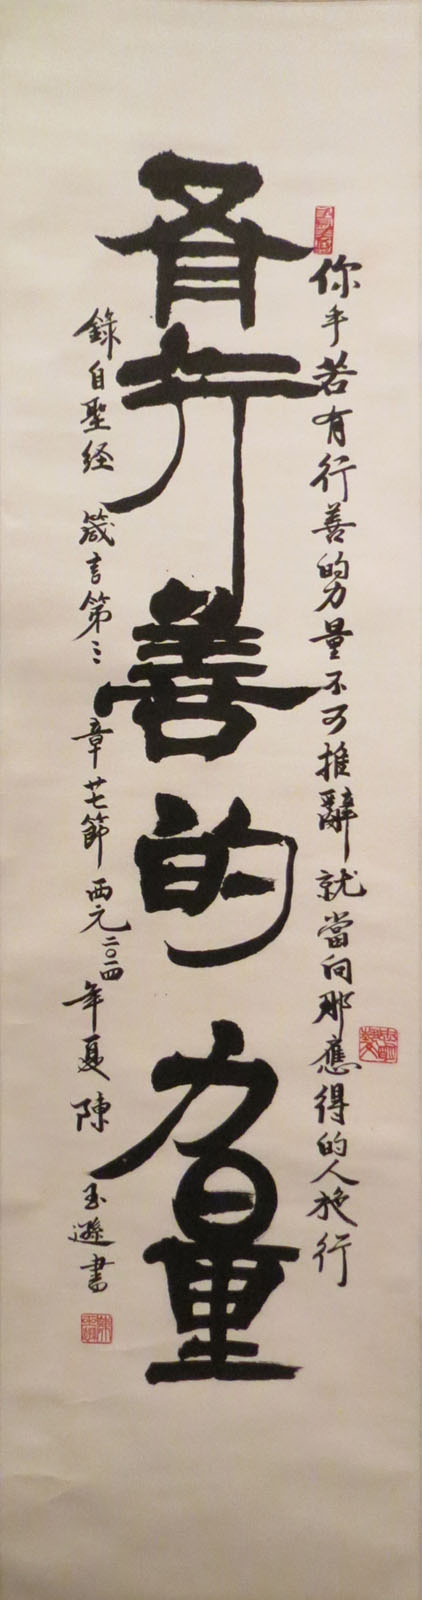 你手若有行善的力量不可推辭就當向那應得的人施行
有行善的力量
錄自聖経 箴言第三章廿七節西元二〇一四年夏陳玉遜書